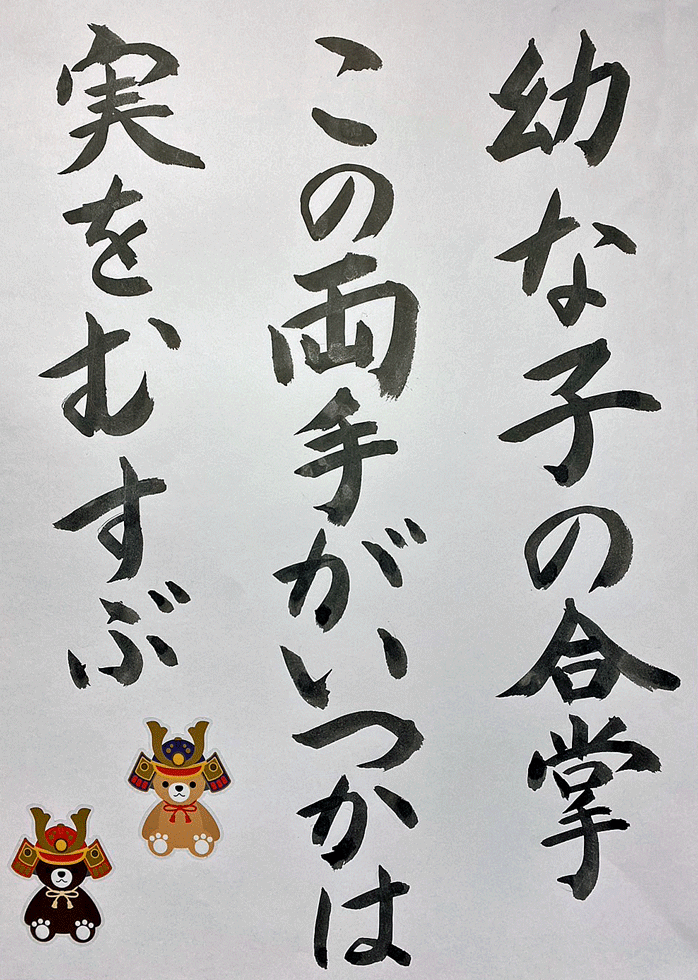 幼な子の合掌
この両手がいつかは
実をむすぶ